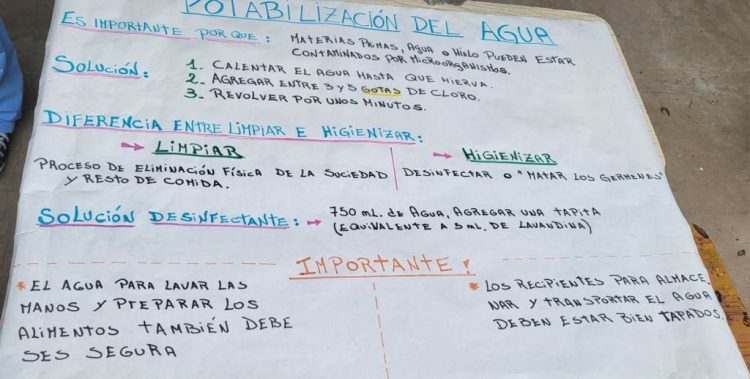 POTABILIZACIÓN DEL AGUA
ES IMPORTANTE POR QUE: MATERIAS PRIMAS, AGUA O HIELO PUEDEN ESTAR
CONTAMINADOS POR MICROORGANISMOS.
SOLUCIÓN: 1. CALENTAR EL AGUA HASTA QUE HIERVA.
2. AGREGAR ENTRE 3 y 5 GOTAS DE CLORO.
3. REVOLVER POR UNOS MINUTOS.
DIFERENCIA ENTRE LIMPIAR E HIGIENIZAR:
→ LIMPIAR
PROCESO DE ELIMINACIÓN FÍSICA DE LA SUCIEDAD
Y RESTO DE COMIDA.
→ HIGIENIZAR
DESINFECTAR O "MATAR LOS GERMENES"
SOLUCIÓN DESINFECTANTE: → 750 mL. de AGUA, AGREGAR UNA TAPITA
(EQUIVALENTE A 5 mL. DE LAVANDINA)
IMPORTANTE!
* EL AGUA PARA LAVAR LAS
MANOS Y PREPARAR LOS
ALIMENTOS TAMBIÉN DEBE
SES SEGURA
* LOS RECIPIENTES PARA ALMACE
NAR Y TRANSPORTAR EL AGUA
DEBEN ESTAR BIEN TAPADOS.